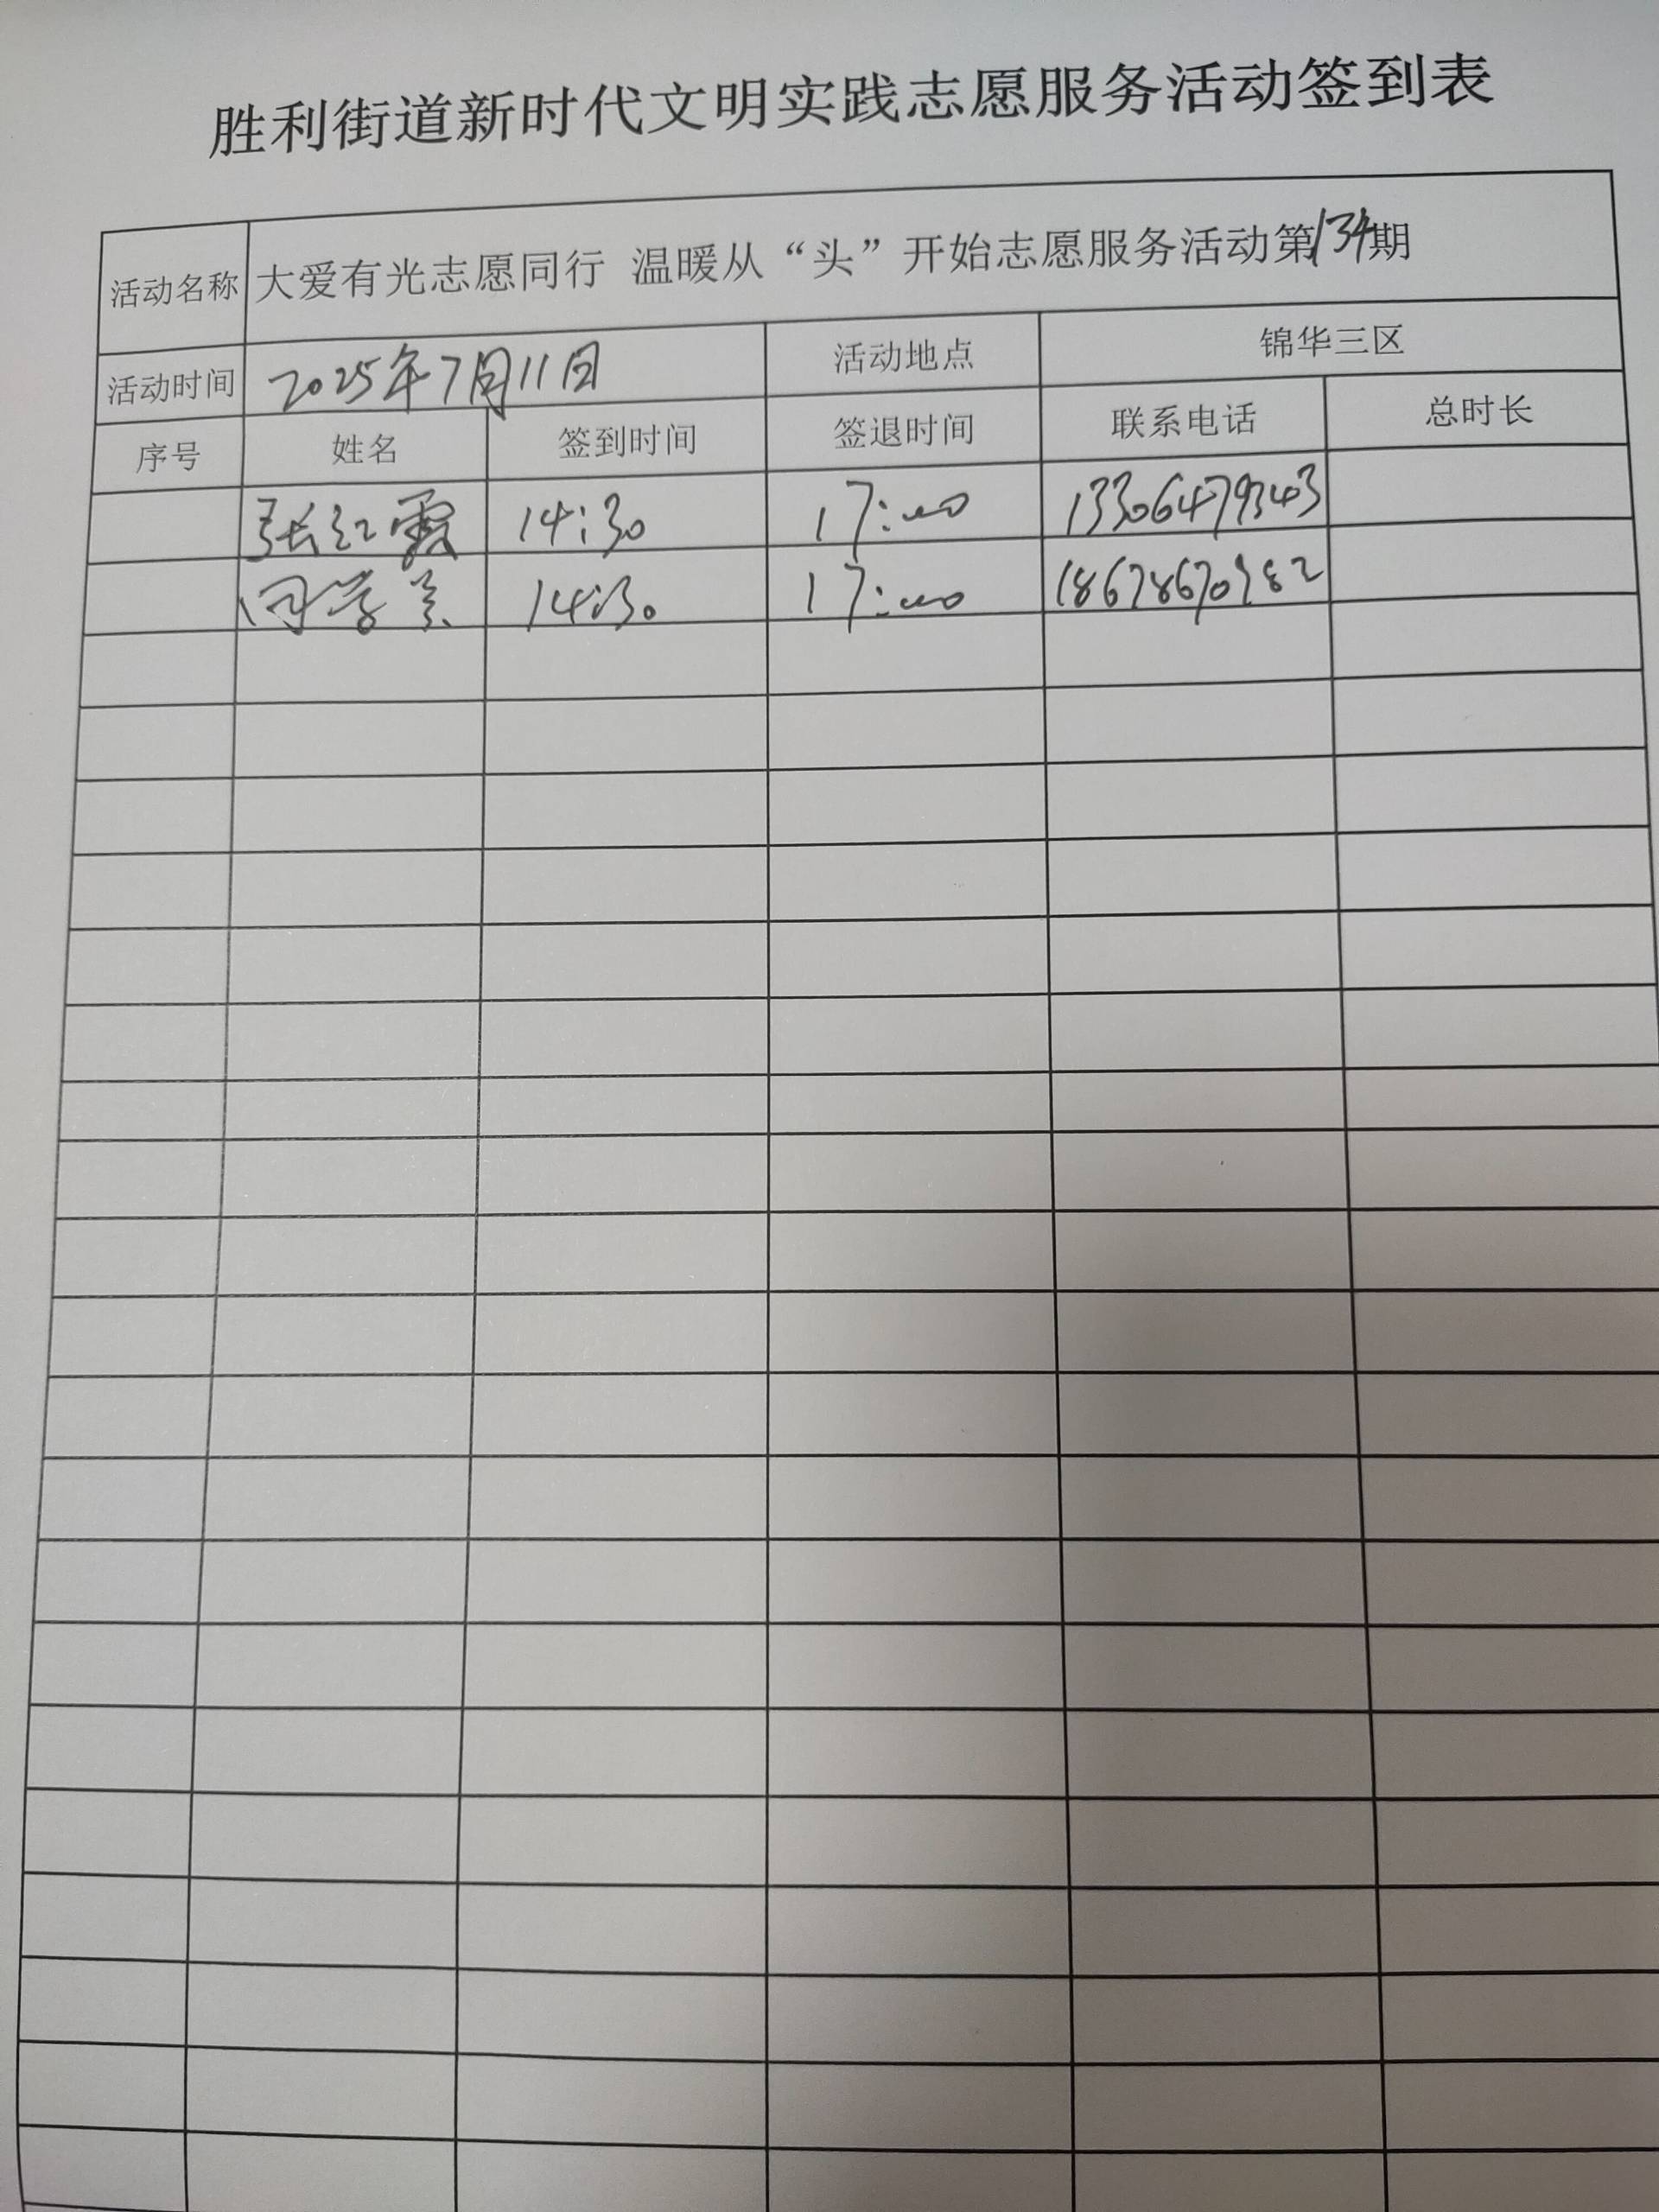 胜利街道新时代文明实践志愿服务活动签到表
活动名称 大爱有光志愿同行 温暖从“头”开始志愿服务活动第134期
活动时间 2025年7月11日 活动地点 锦华三区
序号 姓名 签到时间 签退时间 联系电话 总时长
张红霞 14:30 17:00 13306479343
14:30 17:00 18678670982